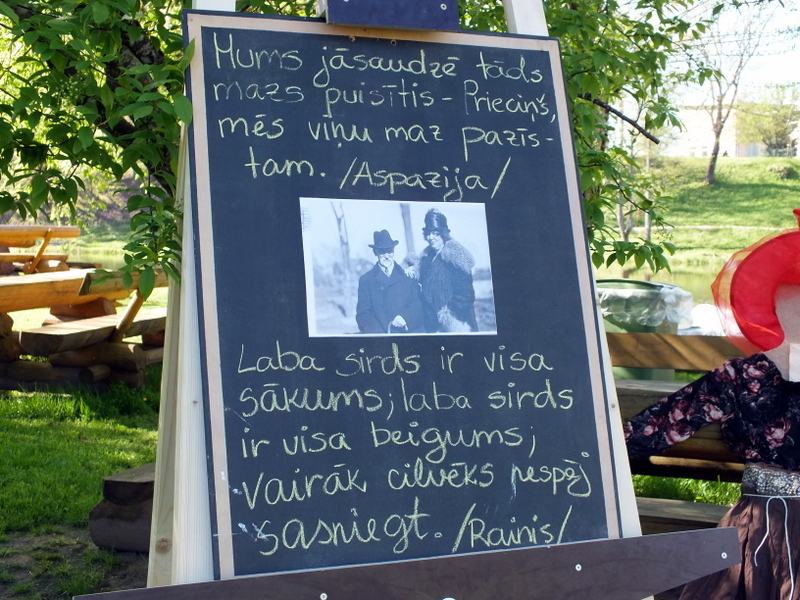 Mums jāsaudzē tāds
mazs puisītis - Prieciņš,
mēs viņu maz pazīs-
tam. /Aspazija/
Laba sirds ir visa
sākums; laba sirds
ir visa beigums;
vairāk cilvēks nespēj
sasniegt. /Rainis/